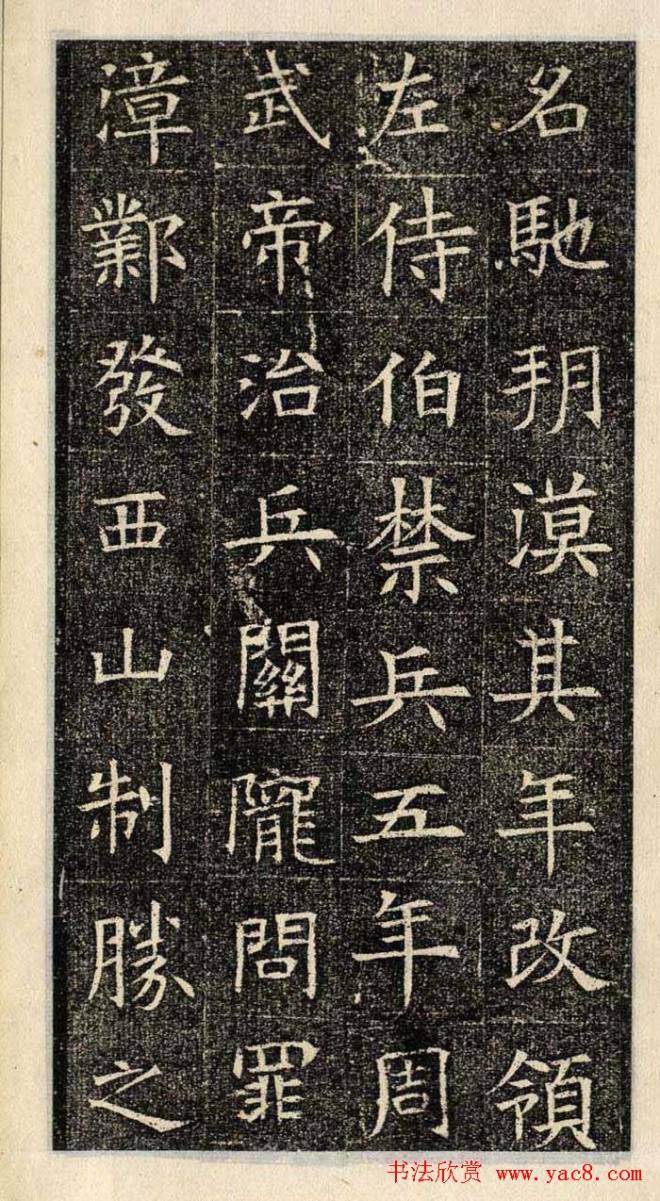 名馳朔漠其年改領
左侍伯禁兵五年周
武帝治兵關隴問罪
漳鄴發西山制勝之
书法欣赏 www.yac8.com